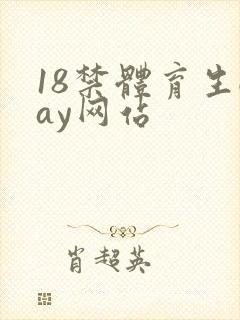 18禁體育生
ay网佔
肖超英